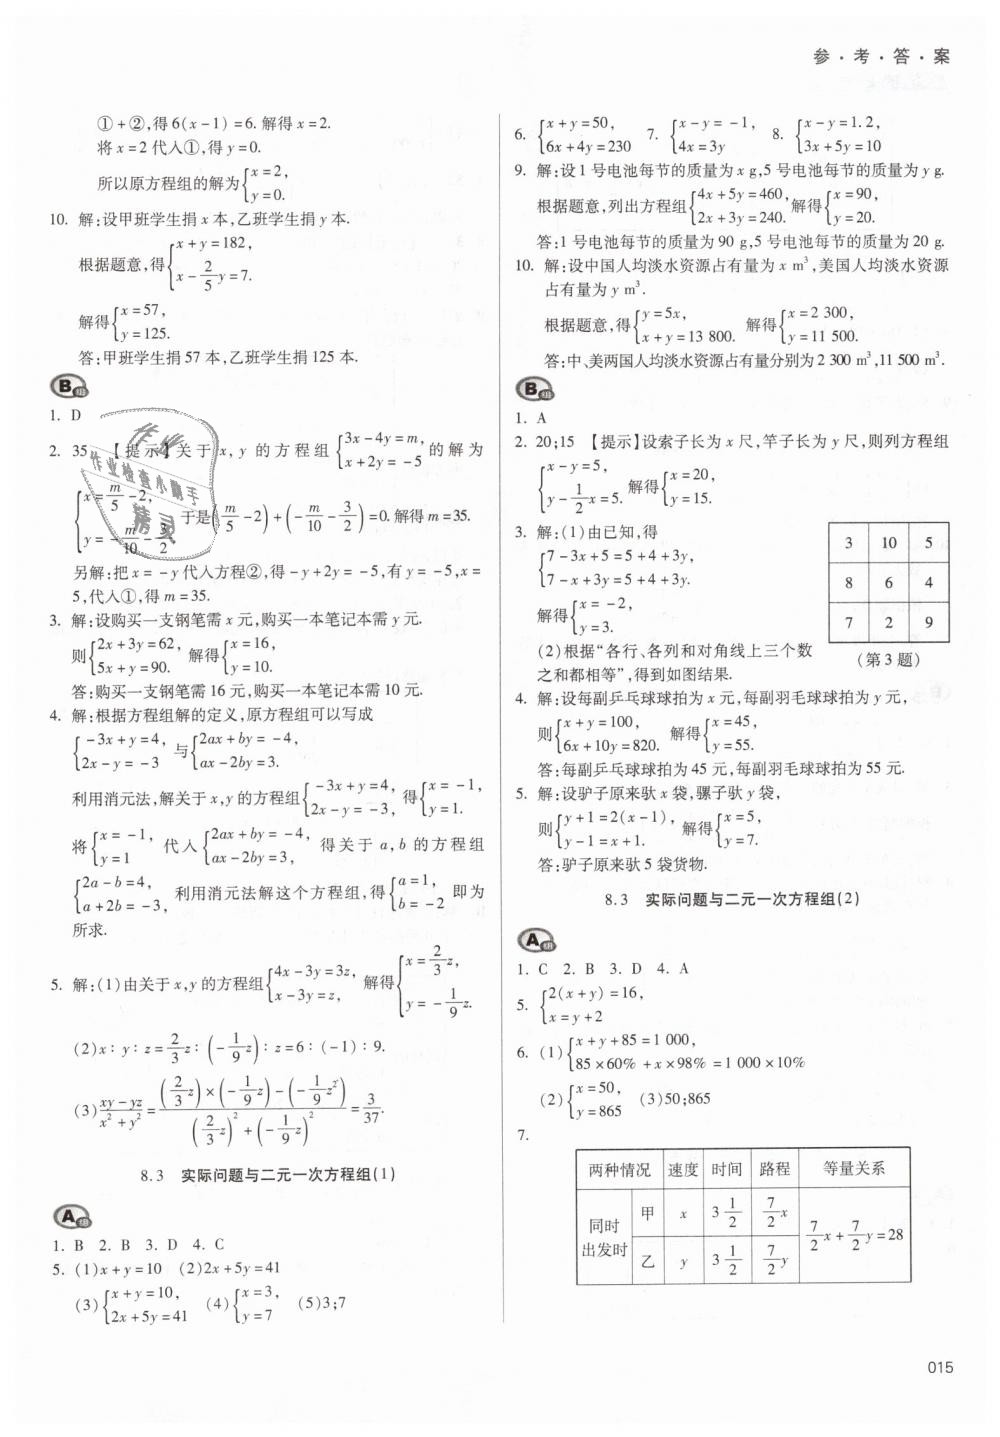 参·考·答·案
①+②,得6(x-1)=6.解得x=2.
将x=2代入①,得y=0.
所以原方程组的解为{x=2, y=0.
10. 解:设甲班学生捐x本,乙班学生捐y本.
根据题意,得{x+y=182, x-2/5y=7.
解得{x=57, y=125.
答:甲班学生捐57本,乙班学生捐125本.
B组
1. D
2. 35 【提示】关于x,y的方程组{3x-4y=m, x+2y=-5的解为
{x=m/5-2, y=-m/10-3/2 于是(m/5-2)+(-m/10-3/2)=0.解得m=35.
另解:把x=-y代入方程②,得-y+2y=-5,有y=-5,x=
5,代入①,得m=35.
3. 解:设购买一支钢笔需x元,购买一本笔记本需y元.
则{2x+3y=62, 5x+y=90. 解得{x=16, y=10.
答:购买一支钢笔需16元,购买一本笔记本需10元.
4. 解:根据方程组解的定义,原方程组可以写成
{-3x+y=4, 2x-y=-3与{2ax+by=-4, ax-2by=3.
利用消元法,解关于x,y的方程组{-3x+y=4, 2x-y=-3,得{x=-1, y=1.
将{x=-1, y=1代入{2ax+by=-4, ax-2by=3,得关于a,b的方程组
{2a-b=4, a+2b=-3,利用消元法解这个方程组,得{a=1, b=-2即为
所求.
5. 解:(1)由关于x,y的方程组{4x-3y=3z, x-3y=z,解得{x=2/3z, y=-1/9z.
(2)x∶y∶z=2/3z∶(-1/9z)∶z=6∶(-1)∶9.
(3)(xy-yz)/(x²+y²)=((2/3z)×(-1/9z)-(-1/9z²))/((2/3z)²+(-1/9z)²)=3/37.
8.3 实际问题与二元一次方程组(1)
A组
1. B 2. B 3. D 4. C
5. (1)x+y=10 (2)2x+5y=41
(3){x+y=10, 2x+5y=41 (4){x=3, y=7 (5)3;7
6. {x+y=50, 6x+4y=230 7. {x-y=-1, 4x=3y 8. {x-y=1.2, 3x+5y=10
9. 解:设1号电池每节的质量为x g,5号电池每节的质量为y g.
根据题意,列出方程组{4x+5y=460, 2x+3y=240.解得{x=90, y=20.
答:1号电池每节的质量为90 g,5号电池每节的质量为20 g.
10. 解:设中国人均淡水资源占有量为x m³,美国人均淡水资源
占有量为y m³.
根据题意,得{y=5x, x+y=13 800. 解得{x=2 300, y=11 500.
答:中、美两国人均淡水资源占有量分别为2 300 m³,11 500 m³.
B组
1. A
2. 20;15 【提示】设索子长为x尺,竿子长为y尺,则列方程组
{x-y=5, y-1/2x=5. 解得{x=20, y=15.
3. 解:(1)由已知,得
{7-3x+5=5+4+3y, 7-x+3y=5+4+3y.
解得{x=-2, y=3.
(2)根据“各行、各列和对角线上三个数
之和都相等”,得到如图结果.
3 10 5
8 6 4
7 2 9
(第3题)
4. 解:设每副乒乓球球拍为x元,每副羽毛球球拍为y元,
则{x+y=100, 6x+10y=820. 解得{x=45, y=55.
答:每副乒乓球球拍为45元,每副羽毛球球拍为55元.
5. 解:设驴子原来驮x袋,骡子驮y袋,
则{y+1=2(x-1), y-1=x+1. 解得{x=5, y=7.
答:驴子原来驮5袋货物.
8.3 实际问题与二元一次方程组(2)
A组
1. C 2. B 3. D 4. A
5. {2(x+y)=16, x=y+2
6. (1){x+y+85=1 000, 85×60%+x×98%=1 000×10%
(2){x=50, y=865 (3)50;865
7.
两种情况 速度 时间 路程 等量关系
同时出发时 甲 x 3 1/2 7/2x 7/2x+7/2y=28
乙 y 3 1/2 7/2y
015
作业
作业检查小助手
精灵